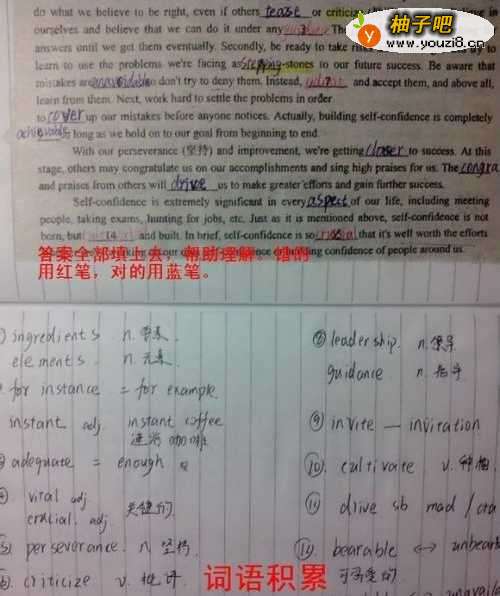 do what we believe to be right, even if others tease or criticiz
ourselves and believe that we can do it under any
answers until we get them eventually. Secondly, be ready to take
learn to use the problems we're facing as stepping-stones to our future success. Be aware that
mistakes are unavoidable don't try to deny them. Instead, and accept them, and above all,
learn from them. Next, work hard to settle the problems in order
to cover up our mistakes before anyone notices. Actually, building self-confidence is completely
achievable long as we hold on to our goal from beginning to end.
With our perseverance (坚持) and improvement, we're getting closer to success. At this
stage, others may congratulate us on our accomplishments and sing high praises for us. The congra
and praises from others will drive us to make greater efforts and gain further success.
Self-confidence is extremely significant in every aspect of our life, including meeting
people, taking exams, hunting for jobs, etc. Just as it is mentioned above, self-confidence is not
born, but and built. In brief, self-confidence is so crucial that it's well worth the efforts
confidence of people around us.
答案全部填上去,帮助理解。错的
用红笔,对的用蓝笔。
柚子吧
www.youzi8.cn
ingredients n.
elements n. 元素
for instance = for example
instant adj. instant coffee
速溶咖啡
adequate = enough
vital adj
crucial. adj. 关键的
perseverance. n. 坚持
criticize v. 批评
⑧ leadership. n. 领导
guidance n. 指导
⑨ invite — invitation
⑩. cultivate v. 种植
⑪ drive sb mad /
⑫ bearable ↔ unbearab
可忍受的
词语积累